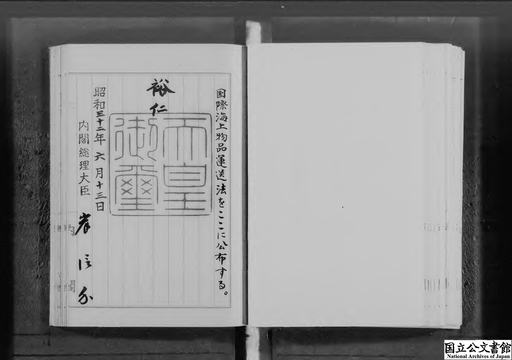 国際海上物品運送法をここに公布する。
裕仁
天皇
御璽
昭和三十二年六月十三日
内閣総理大臣 岸信介
国立公文書館
National Archives of Japan